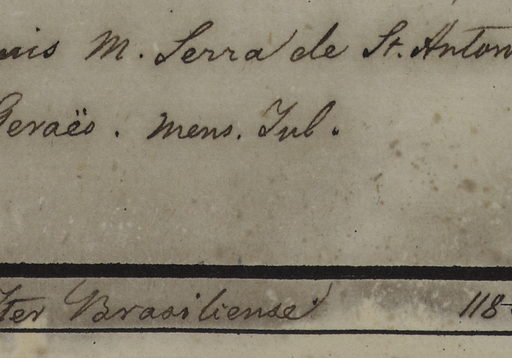 M. Serra de St. Anton
Geraës. Mens. Jul.
Iter Brasiliense 118